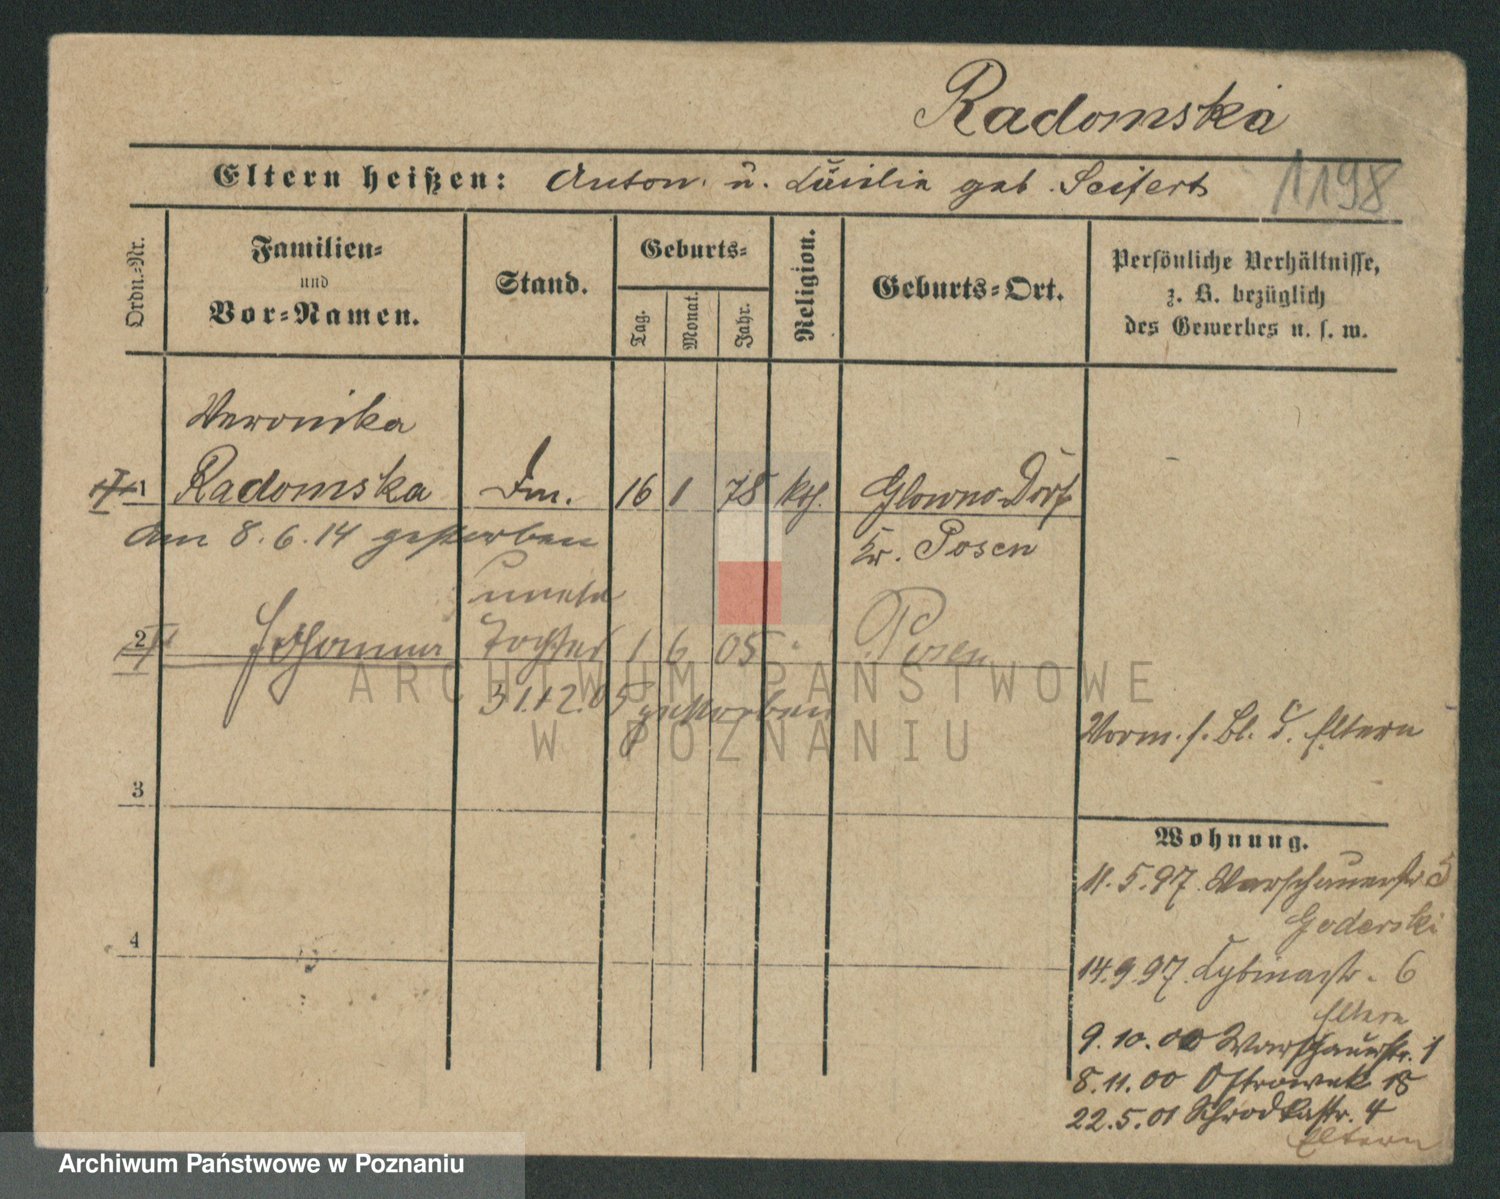 Radomska
Eltern heißen: Anton u. Cäcilia geb. Seifert
1198
Ordn.-Nr.
Familien-
und
Vor-Namen.
Stand.
Geburts-
Tag.
Monat.
Jahr.
Religion.
Geburts-Ort.
Persönliche Verhältnisse,
z. B. bezüglich
des Gewerbes u. s. w.
Veronika
1 Radomska 16 1 78 kth. Glowno-Dorf
am 8.6.14 gestorben Kr. Posen
unehel
2 Johanna Tochter 1 6 05 Posen
31.12.05 gestorben
Vorm. s. Bl. d. Eltern
3
Wohnung.
11.5.97 Warschauerstr 5
Goderski
4
14.9.97. Cybinastr. 6
Eltern
9.10.00 Warschauerstr. 1
8.11.00 Ostrowek 18
22.5.01 Schrodkastr. 4
Eltern
ARCHIWUM PAŃSTWOWE
W POZNANIU
Archiwum Państwowe w Poznaniu